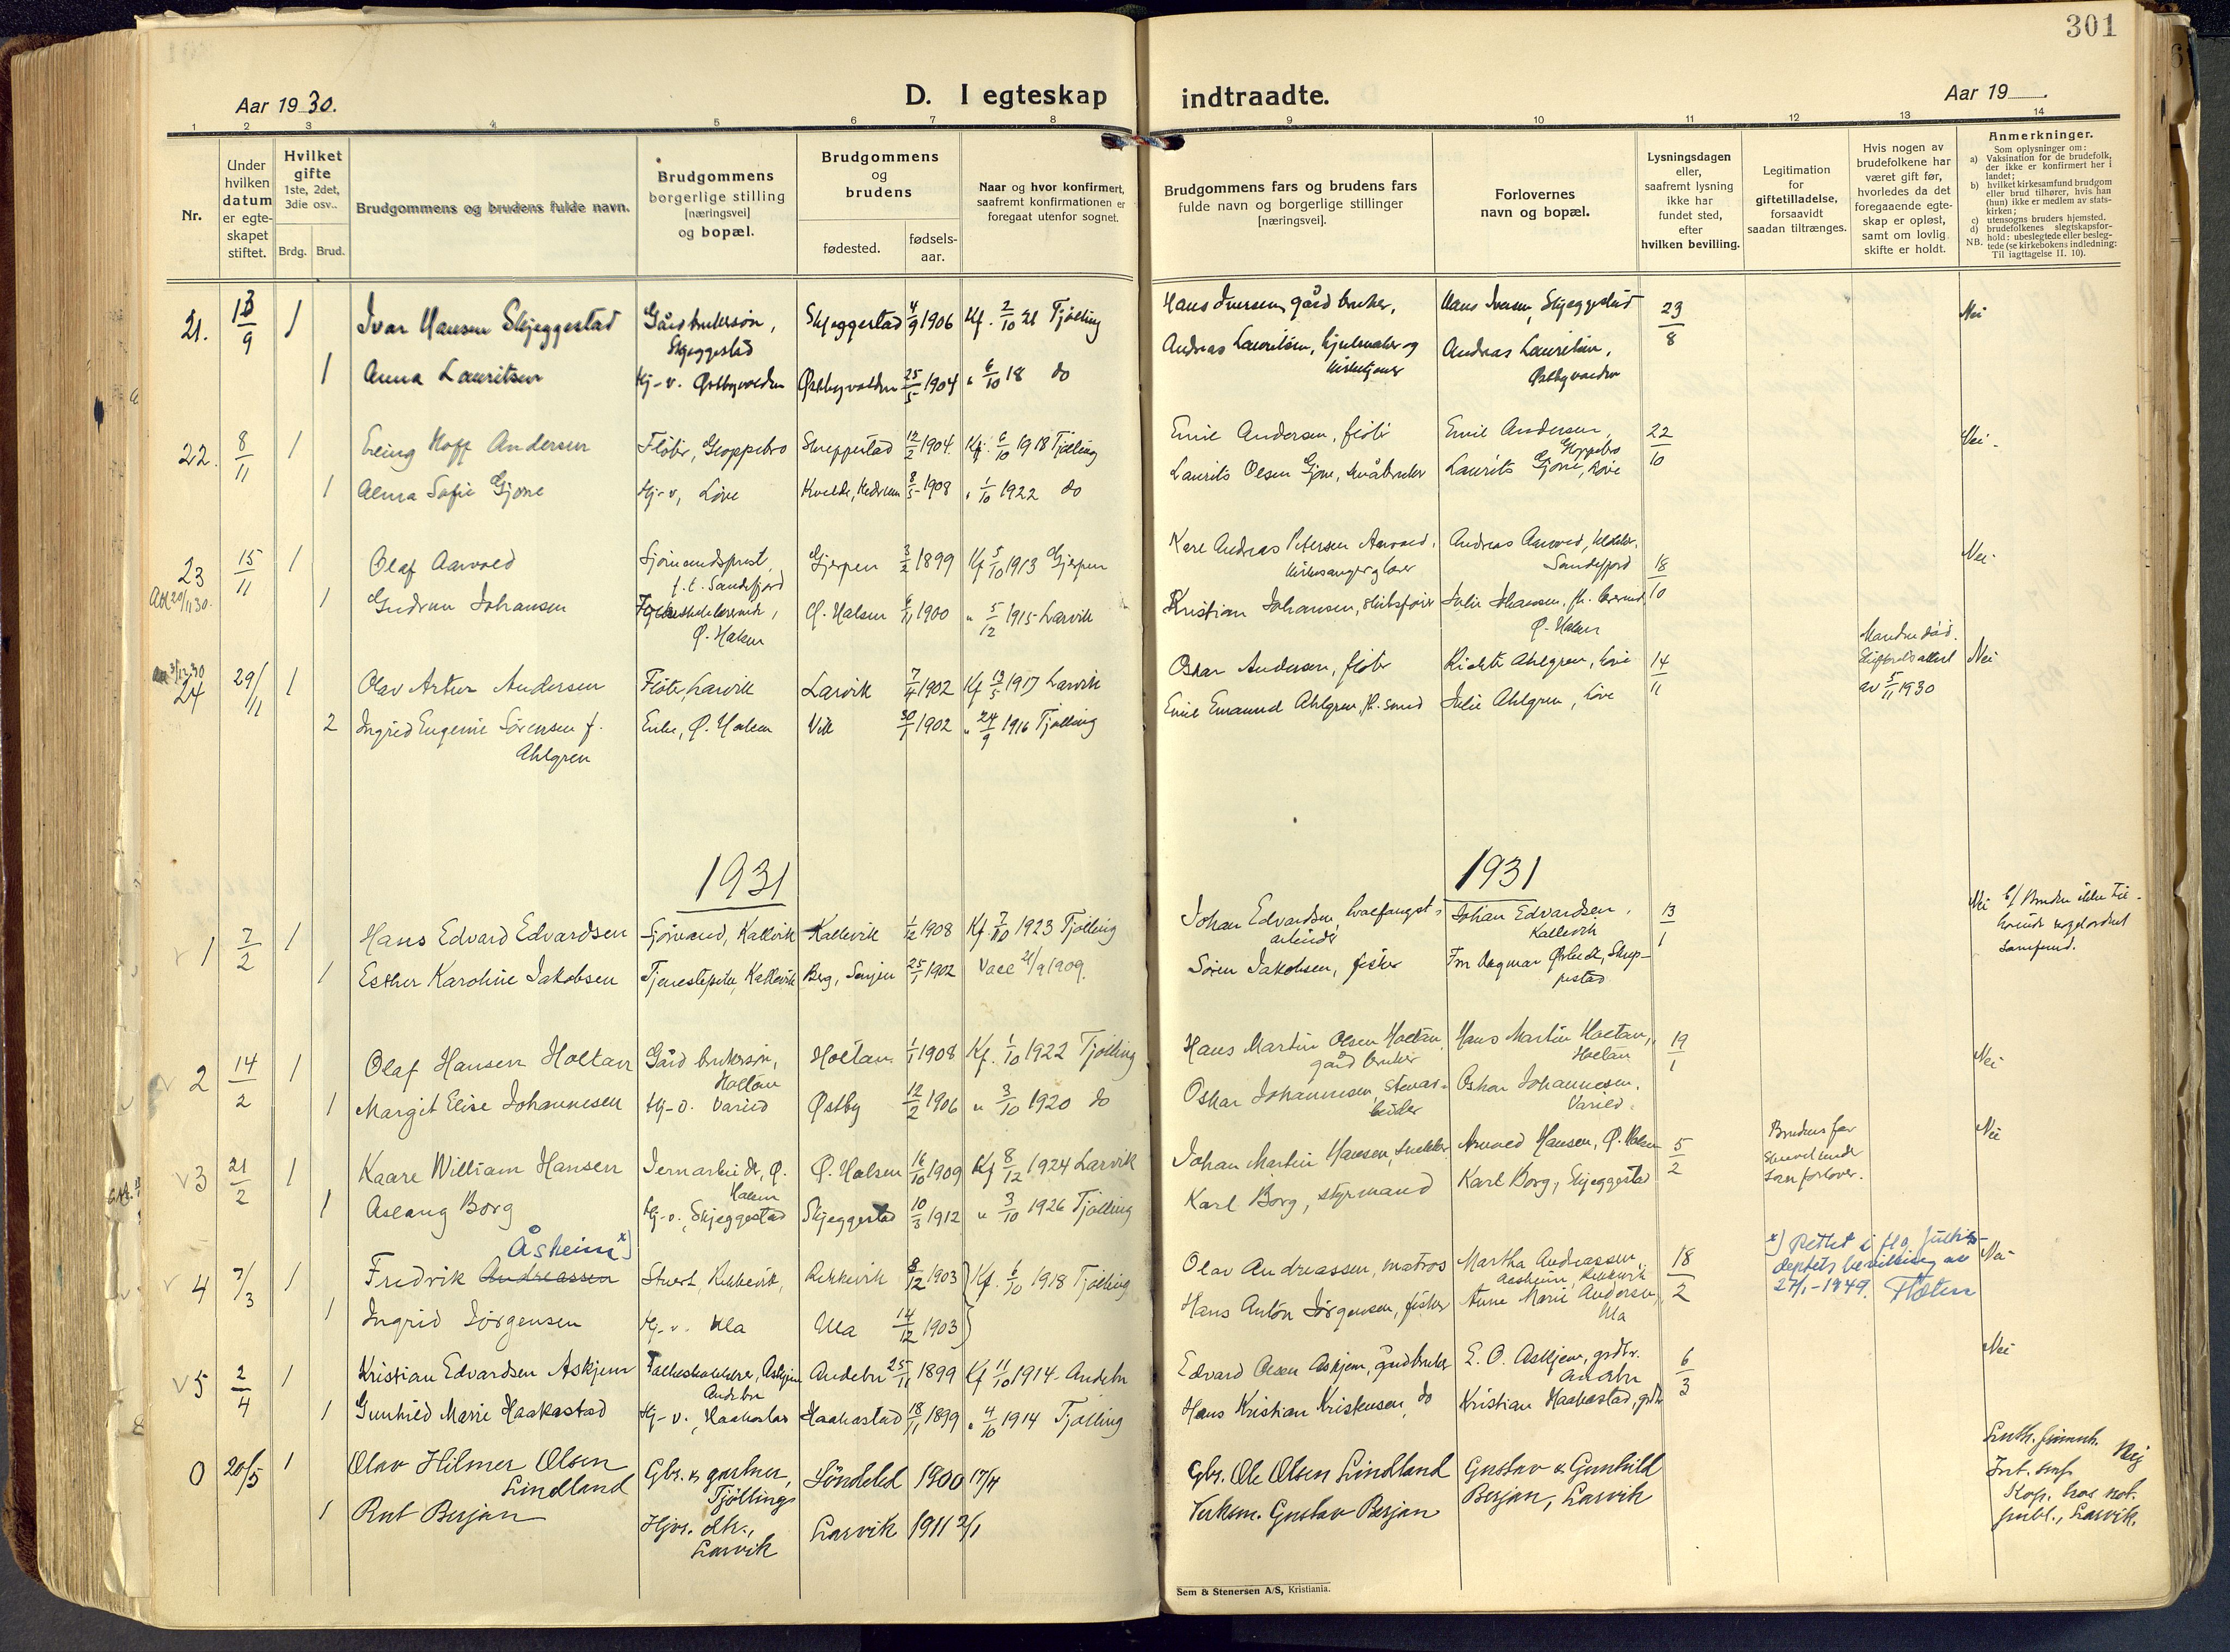 301
Aar 19 30.
D. I egteskap indtraadte.
Aar 19 .
1 2 3 4 5 6 7 8 9 10 11 12 13 14
Nr.
Under hvilken datum er egteskapet stiftet.
Hvilket gifte
1ste, 2det, 3die osv..
Brdg. Brud.
Brudgommens og brudens fulde navn.
Brudgommens borgerlige stilling [næringsvei] og bopæl.
Brudgommens og brudens
fødested.
fødsels-aar.
Naar og hvor konfirmert, saafremt konfirmationen er foregaat utenfor sognet.
Brudgommens fars og brudens fars fulde navn og borgerlige stillinger [næringsvei].
Forlovernes navn og bopæl.
Lysningsdagen eller, saafremt lysning ikke har fundet sted, efter hvilken bevilling.
Legitimation for giftetilladelse, forsaavidt saadan tiltrænges.
Hvis nogen av brudefolkene har været gift før, hvorledes da det foregaaende egteskap er opløst, samt om lovlig skifte er holdt.
Anmerkninger.
Som oplysninger om:
a) Vaksination for de brudefolk, der ikke er konfirmert her i landet;
b) hvilket kirkesamfund brudgom eller brud tilhører, hvis han (hun) ikke er medlem av statskirken;
c) utensogns bruders hjemsted.
d) brudefolkenes slegtskapsforhold: ubeslegtede eller beslegtede (se kirkebokens indledning:
NB. Til iagttagelse II. 10).
21. 13/9 1 Ivar Hansen Skjeggestad Gårdbrukersøn, Skjeggestad Skjeggestad 4/9 1906 Kf. 2/10 21 Tjølling Hans Iversen, gårdbruker, Hans Iversen, Skjeggestad 23/8 Nei
1 Anna Lauritsen Hj-v. Østbyvolden Østbyvolden 25/5 1904 " 6/10 18 do Andreas Lauritsen, hjulmaker og kirketjener Andreas Lauritsen, Østbyvolden
22. 8/11 1 Erling Hoff Andersen Fløter, Gloppebro Skreppestad 12/2 1904. Kf. 6/10 1918 Tjølling Emil Andersen, fløter Emil Andersen, Gloppebro 22/10 Nei -
1 Alma Sofie Gjone Hj-v, Løve Kvelde, Hedrum 8/5 1908 " 1/10 1922 do Laurits Olsen Gjone, småbruker Laurits Gjone, Løve
23 15/11 1 Olaf Aarvold Sjømandsprest, f.t. Sandefjord Gjerpen 3/2 1899 Kf 5/10 1913 Gjerpen Karl Andreas Petersen Aarvold, kirkesanger og lærer Andreas Aarvold, Sandefjord 18/10 Nei -
1 Gudrun Johansen Folkeskolelærerinde, Ø. Halsen Ø. Halsen 6/11 1900 " 5/12 1915 Larvik Kristian Johansen, skibsfører Julie Johansen, Ø. Halsen
24 29/11 1 Olav Artur Andersen Fløter, Larvik Larvik 7/4 1902 Kf 13/5 1917 Larvik Oskar Andersen, fløter Rickte Ahlgren, Løve 14/11 Manden død. Skifteretsattest av 5/11 1930 Nei
2 Ingrid Eugenie Sørensen f. Ahlgren Enke, Ø. Halsen Vik 30/1 1902 " 24/9 1916 Tjølling Emil Emanuel Ahlgren, fh. smed Julie Ahlgren, Løve
1931 1931
1 7/2 1 Hans Edvard Edvardsen Sjømand, Kallevik Kallevik 1/12 1908 Kf 7/10 1923 Tjølling Johan Edvardsen, hvalfangstarbeider Johan Edvardsen, Kallevik 13/1 Nei b/ Bruden ikke tilhørende noget ordnet samfund.
1 Esther Karoline Jakobsen Tjenestepike, Kallevik Berg, Senjen 25/1 1902 Vacc 21/9 1909. Søren Jakobsen, fisker Fru Dagmar Ørbeck, Skreppestad
2 14/2 1 Olaf Hansen Holtan Gårdbrukersøn, Holtan Holtan 1/1 1908 Kf. 1/10 1922 Tjølling Hans Martin Olsen Holtan, gårdbruker Hans Martin Holtan, Holtan 19/1 Nei
1 Margit Elise Johannesen Hj-v. Varild Østby 12/2 1906 " 3/10 1920 do Oskar Johannesen, stenarbeider Oskar Johannesen, Varild.
3 21/2 1 Kaare William Hansen Jernarbeider, Ø. Halsen Ø. Halsen 16/10 1909 Kf 8/12 1924 Larvik Johan Martin Hansen, snekker Arnold Hansen, Ø. Halsen 5/2 Brudens far skrevet under som forlover. Nei
1 Aslaug Borg Hj-v., Skjeggestad Skjeggestad 10/3 1912 " 3/10 1926 Tjølling Karl Borg, styrmand Karl Borg, Skjeggestad
Åsheim x)
4 7/3 1 Fredrik Andreassen Stuert, Rekkevik, Rekkevik 8/12 1903 Kf. 6/10 1918 Tjølling Olav Andreassen, matros Martha Andreassen, Aasheim, Rekkevik 18/2 x) Rettet i flg. Justisdeptets bevilling av 27/1-1949. Nei -
1 Ingrid Jørgensen Hj-v. Ula Ula 14/12 1903 Hans Anton Jørgensen, fisker Anne Marie Andersen, Ula
5 2/4 1 Kristian Edvardsen Askjem Folkeskolelærer, Askjem Andebu Andebu 25/11 1899 Kf 11/10 1914 Andebu Edvard Olsen Askjem, gårdbruker E. O. Askjem, grdbr. Andebu 6/3 Nei
1 Gunhild Marie Haakastad Hj-v., Haakastad Haakastad 18/11 1899 " 4/10 1914 Tjølling Hans Kristian Kristensen, do Kristian Haakastad, grdbr
0 20/5 1 Olav Hilmer Olsen Lindland Gbr. & gartner, Tjølling Söndeled 1900 17/4 Gbr. Ole Olsen Lindland Gustav & Gunhild Berjan, Larvik Luth. frimenh. Int. samf. Kop. hos not. publ., Larvik. Nej
1 Rut Berjan Hjvr. dtr., Larvik Larvik 1911 2/1 Verksm. Gustav Berjan
Sem & Stenersen A/S, Kristiania.